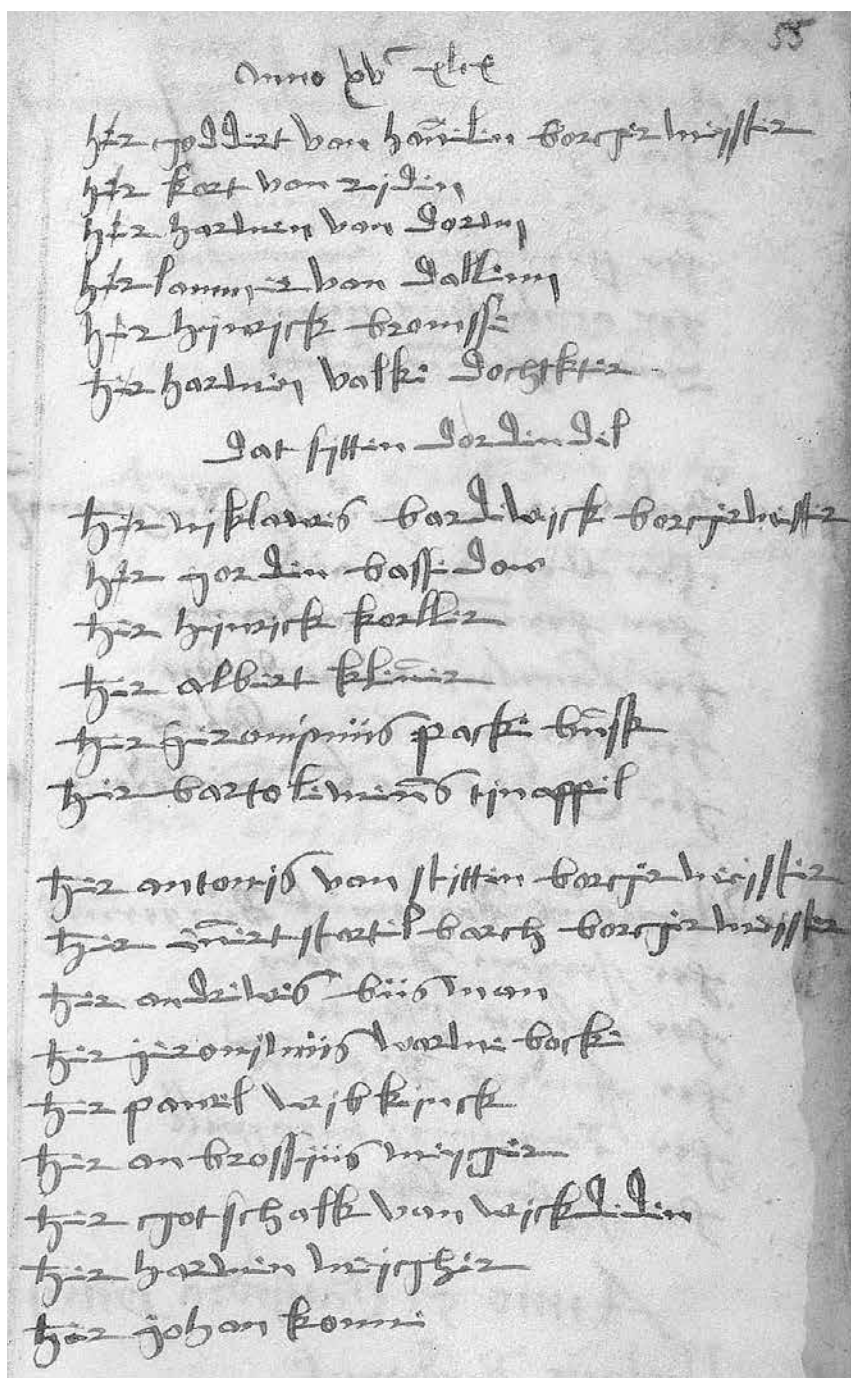 55
Anno xvc xlix
her goddert van hauelen borgermeister
her kort van riden
her harmen van dorun
her lammer van dallem
her hinrick bromsse
her harmen valke dochkter
dat sitten dordendel
her niklawes bardewick borgermeister
her gorden bassedow
her hinrick korler
her albert klener
her geronimus packebusk
her bartolimeus tinappel
her antonis van stitten borgermeister
her euert stortelbarch borgermeister
her andrewes busman
her geronimus warmebocke
her pawel wibkinck
her anbrosius meiger
her gotschalk van wickdeden
her harmen meigher
her johan konne